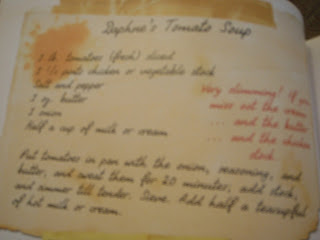 Daphne's Tomato Soup
1 lb. tomatoes (fresh) sliced
1 1/2 pints chicken or vegetable stock
Salt and pepper
1 oz. butter
1 onion
Half a cup of milk or cream
Very slimming! If you
miss out the cream
... and the butter
... and the chicken
stock
Put tomatoes in pan with the onion, seasoning, and
butter, and sweat them for 20 minutes, add stock,
and simmer till tender. Sieve. Add half a teacupful
of hot milk or cream.